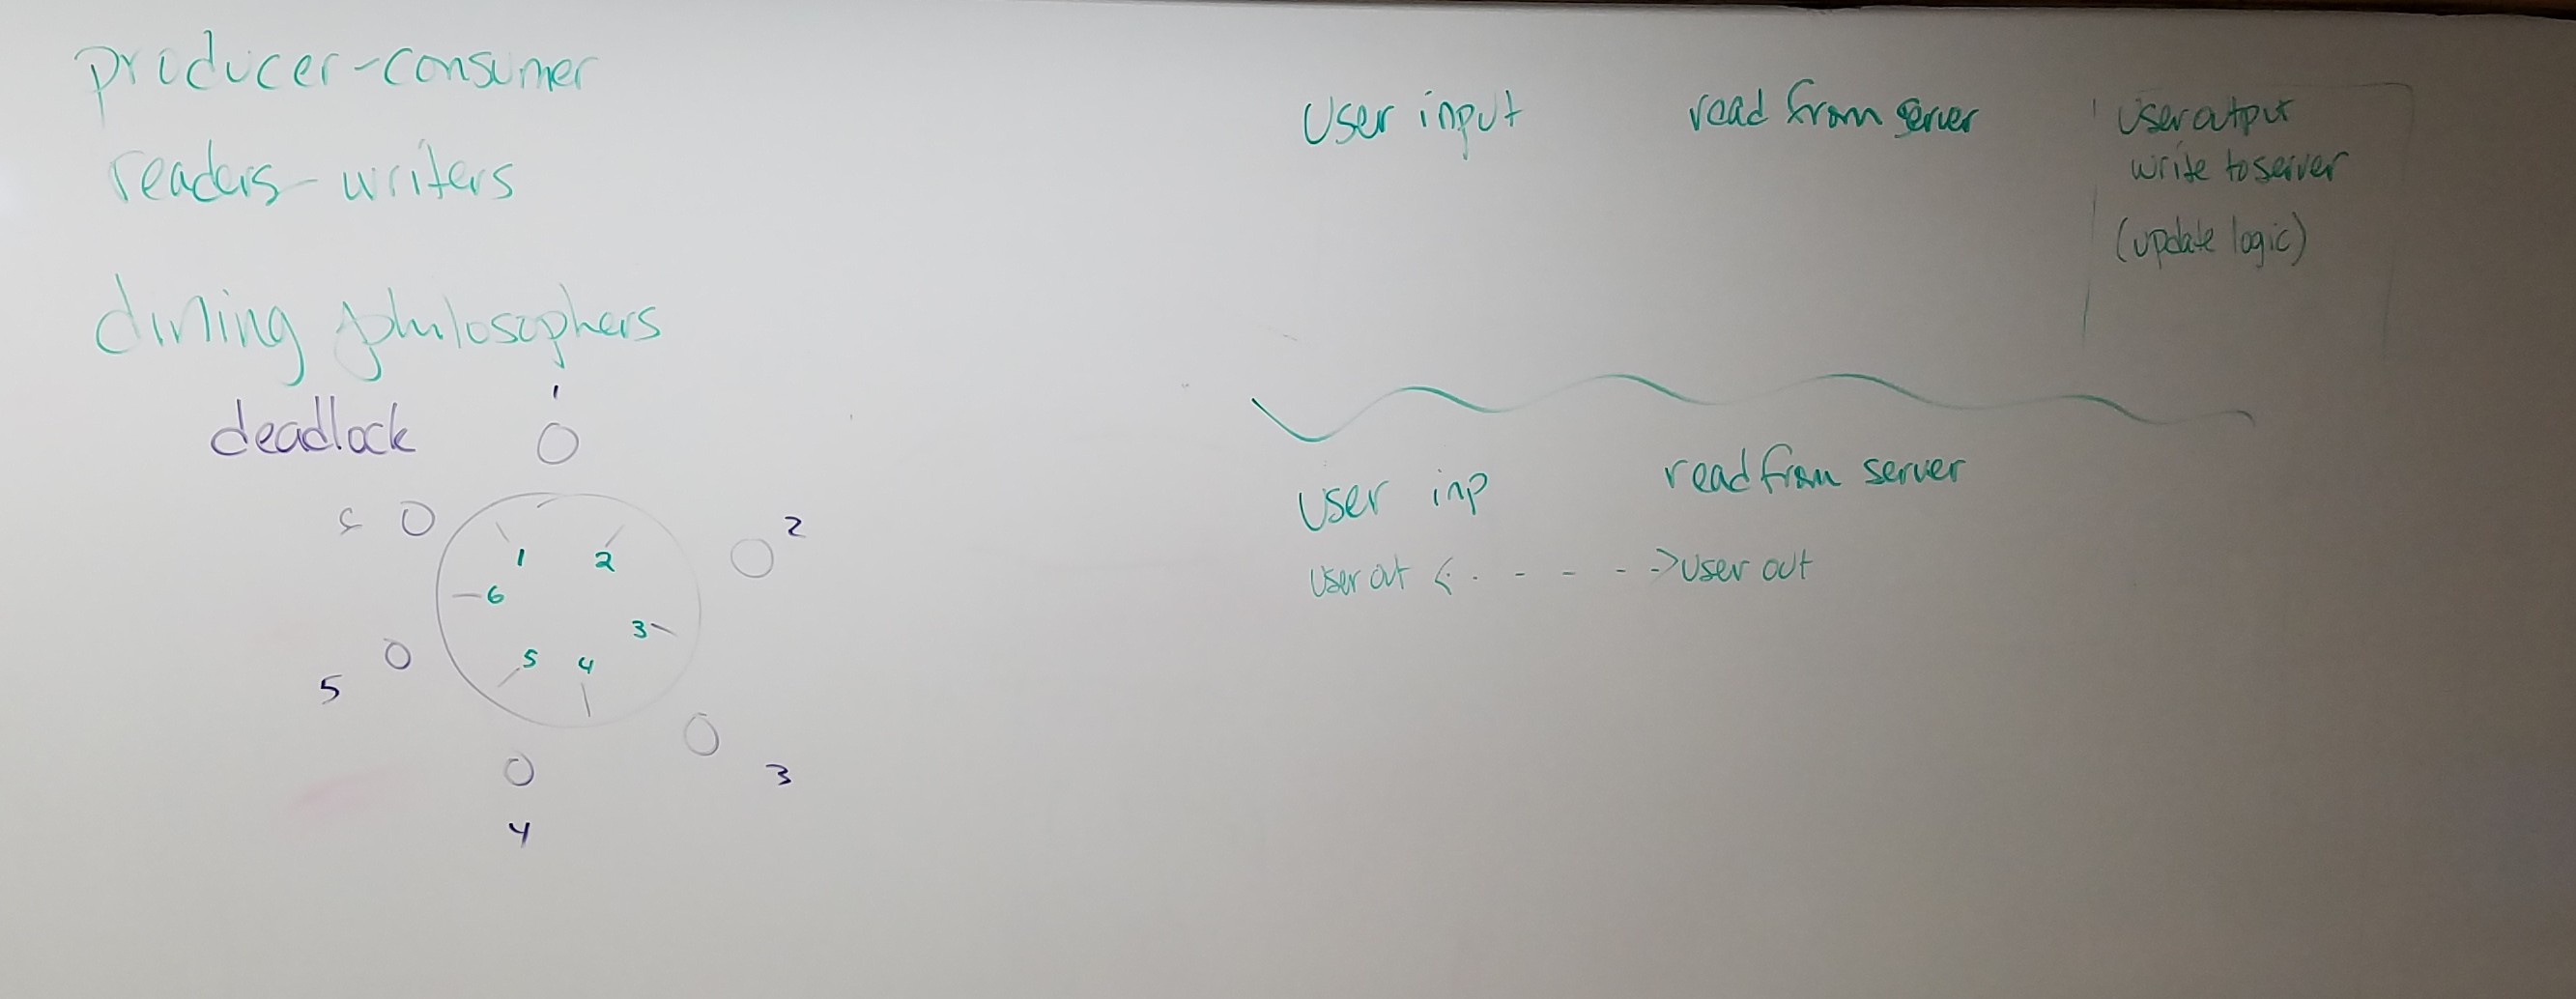 producer-consumer
readers-writers
dining philosophers
deadlock
1
2
3
4
5
1
2
3
4
5
6
User input
read from server
User output
write to server
(update logic)
User inp
read from server
User out <- - - - -> User out